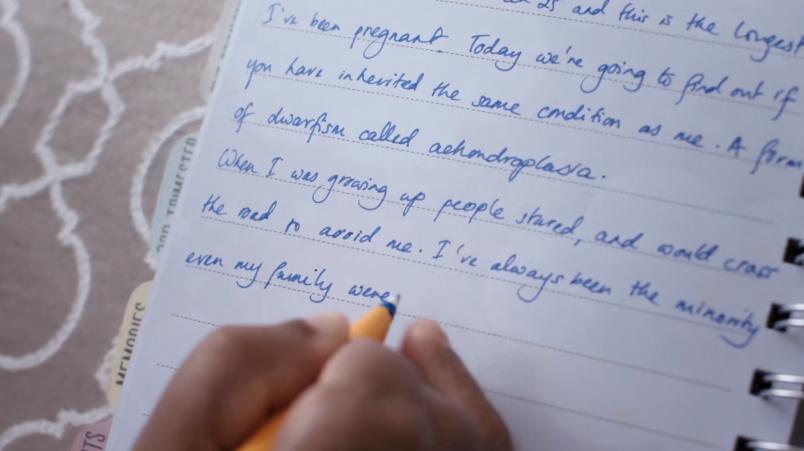 25 and this is the longest
I've been pregnant. Today we're going to find out if
you have inherited the same condition as me. A form
of dwarfism called achondroplasia.
When I was growing up people stared, and would cross
the road to avoid me. I've always been the minority
even my family were
3RD TRIMESTER
MEMORIES